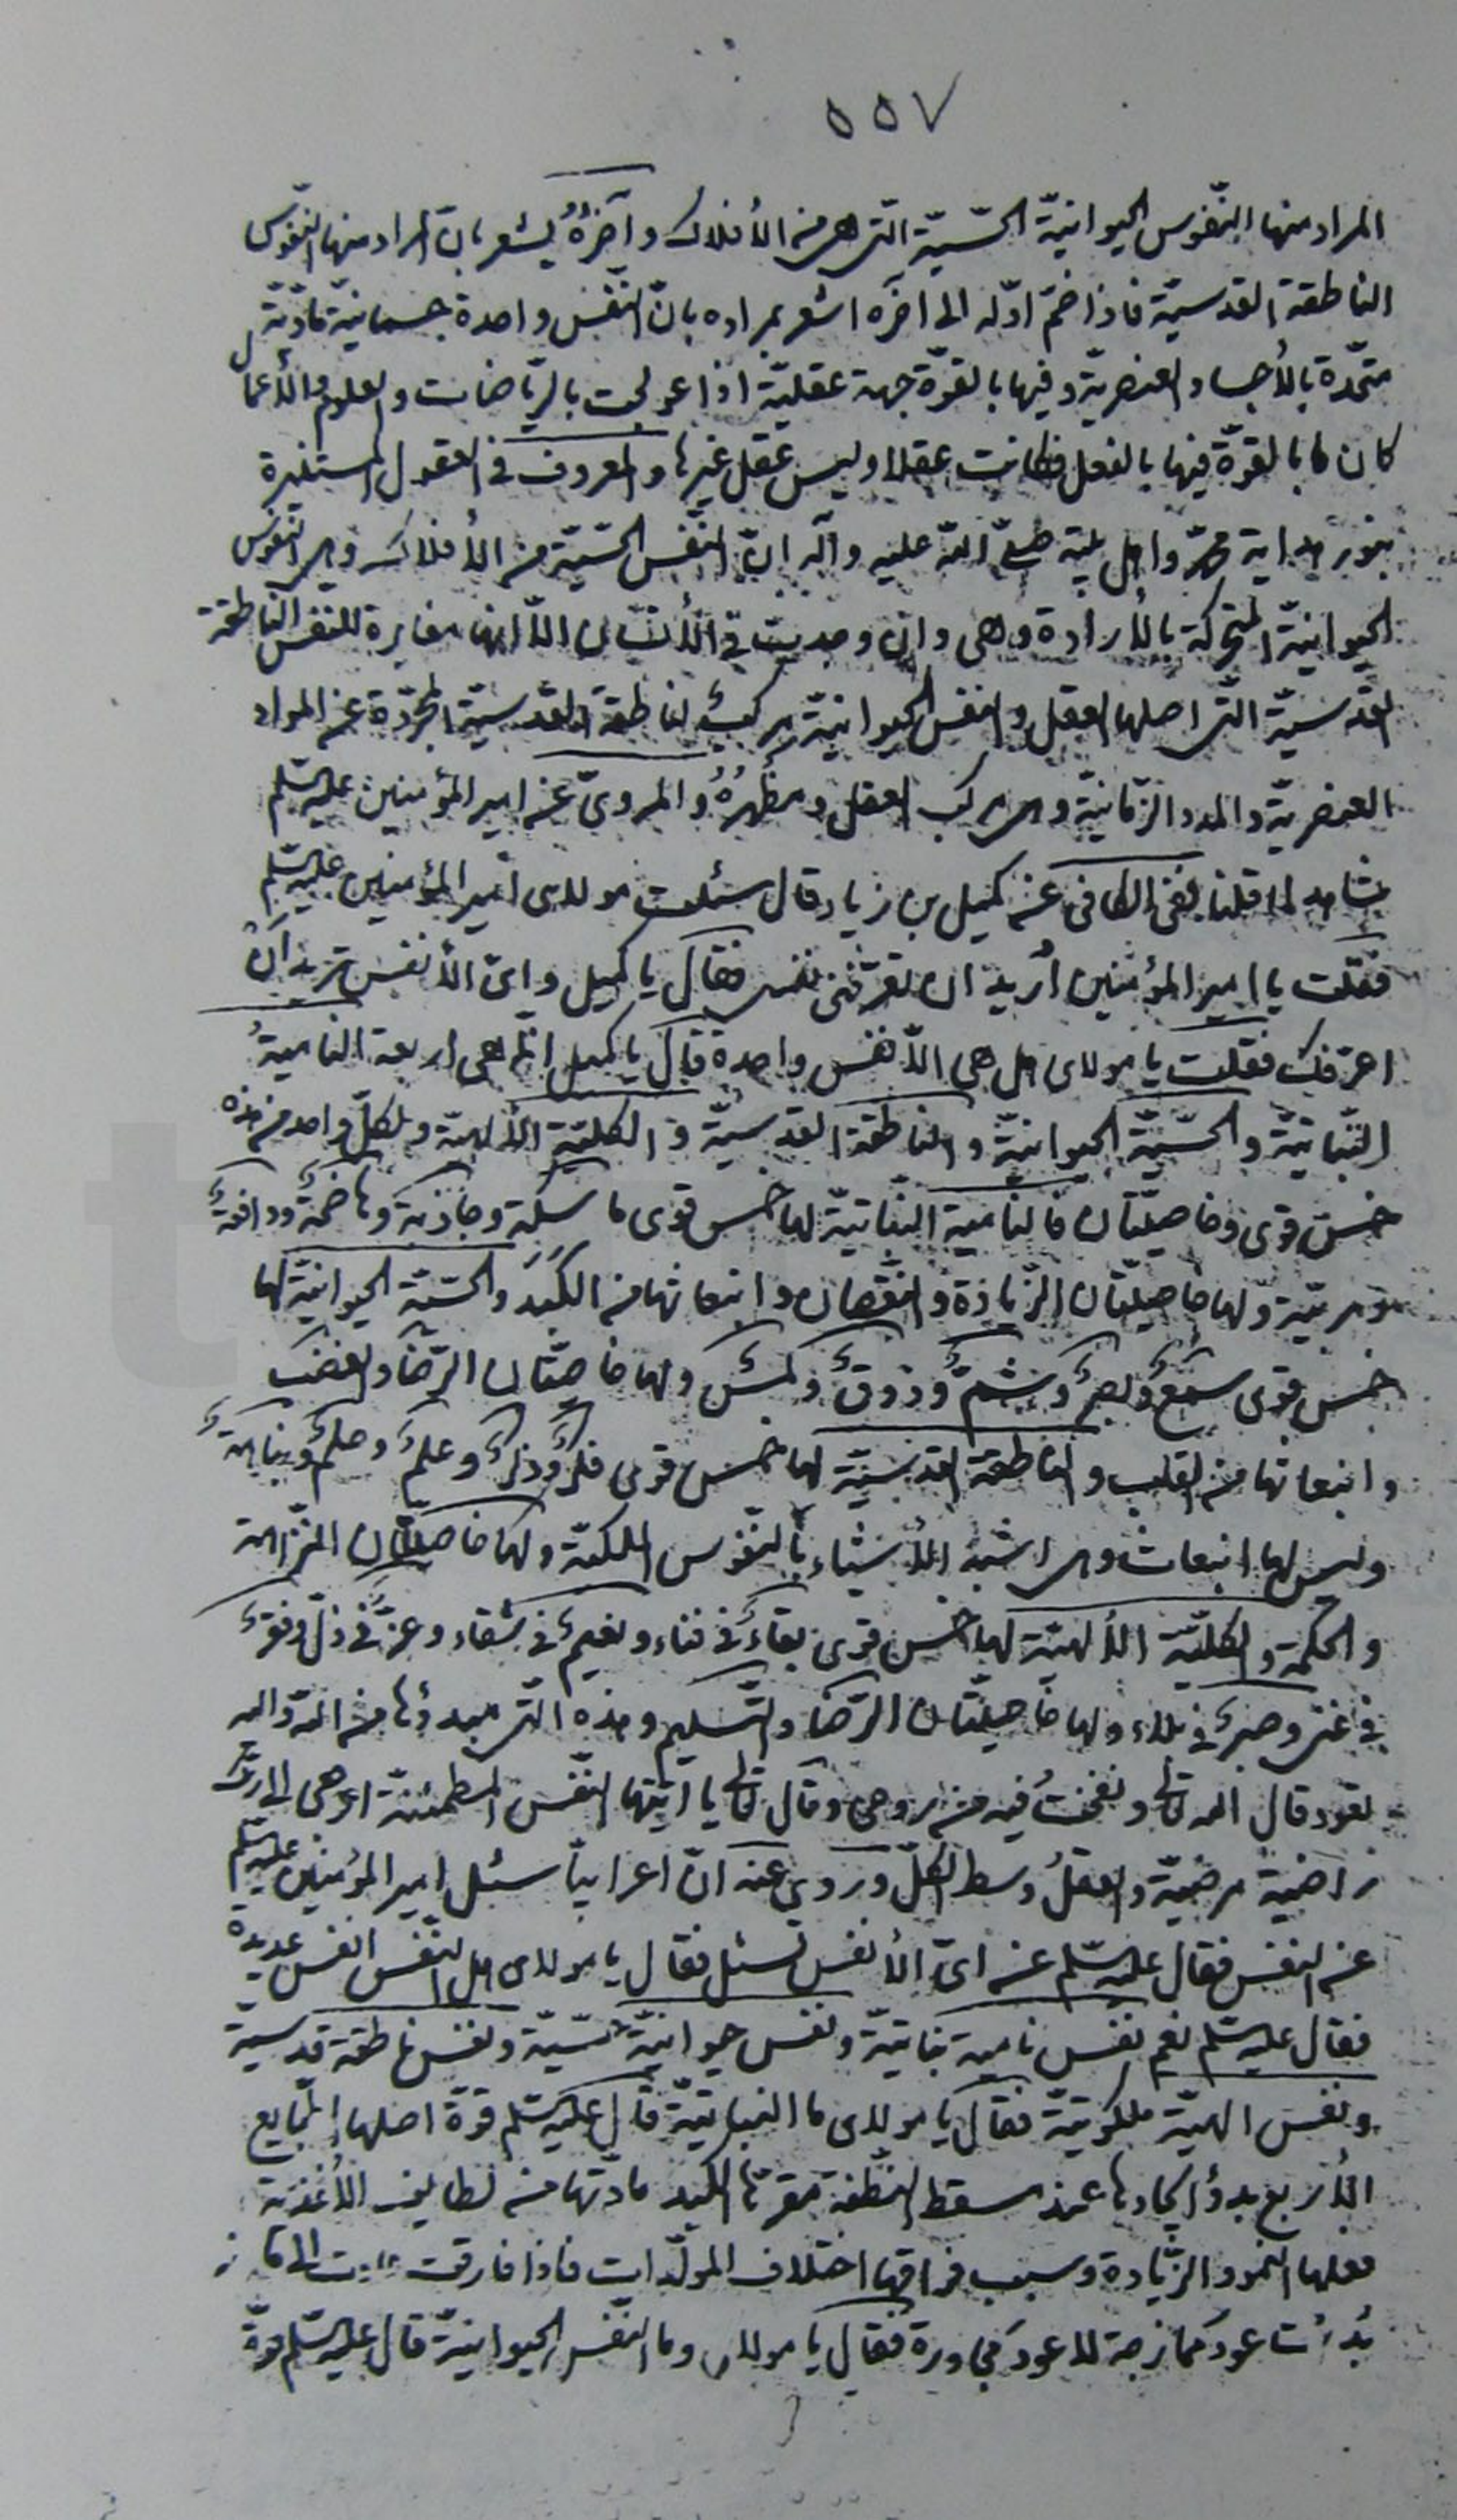 ٥٥٧
المراد منها النّفوس الحيوانيّة الحسّيّة الّتى هى من الأفلاك وآخرُهُ يُشعر بانّ المراد منها النّفوس
الناطقة القدسيّة فاذا ضمّ اوّله الى آخره اشعر بمراده بانّ النّفس واحدة جسمانيّة مادّيّة
متّحدة بالأجساد العنصريّة وفيها بالقوّة جهة عقليّة اذا عولجت بالرّياضات والعلوم والأعمال
كان ما بالقوّة فيها بالفعل فكانت عقلا وليس عقل غيرها والمعروف فى العقول المستنيرة
بنور هداية محمّد واهل بيته صلّى اللّه عليه وآله انّ النّفس الحسّيّة من الأفلاك وهى النّفوس
الحيوانيّة المتحركة بالأرادة وهى وان وجدت فى الأنسان الّا انها مغايرة للنفس الناطقة
القدسيّة الّتى اصلها العقل والنفس الحيوانيّة مركبُ الناطقة القدسيّة المجرّدة عن المواد
العنصريّة والمدد الزّمانيّة وهى مركب العقل ومظهرُهُ والمروىّ عن امير المؤمنين عليه السّلم
شاهد لما قلنا ففى الكافى عن كميل بن زياد قال سئلت مولاى امير المؤمنين عليه السّلم
فقلت يا امير المؤمنين اُريد ان تعرّفنى نفسى فقال يا كميل واىّ الأنفس تريد ان
اعرّفك فقلت يا مولاى هل هى الّا نفس واحدة قال يا كميل انّما هى اربعة الناميةُ
النّباتيّة والحسّيّة الحيوانيّة والناطقة القدسيّة والكلّيّة الألهيّة ولكلّ واحد من هذه
خمس قوى وخاصيّتان فالنامية النّباتيّة لها خمس قوى ماسكة وجاذبة وهاضمةٌ ودافعةٌ
ومربّية ولها خاصيّتان الزّيادة والنّقصان وانبعاثها من الكبد والحسّيّة الحيوانيّة لها
خمس قوى سمعٌ وبصرٌ وشمٌّ وذوقٌ ولمسٌ ولها خاصيّتان الرّضا والغضب
وانبعاثها من القلب والناطقة القدسيّة لها خمس قوى فكرٌ وذكرٌ وعلمٌ وحلمٌ ونباهةٌ
وليس لها انبعاث وهى اشبه الأشياء بالنّفوس الملكيّة ولها خاصيّتان النّزاهة
والحكمة والكلّيّة الألهيّة لها خمس قوى بقاءٌ فى فناء ونعيمٌ فى شقاء وعزٌّ فى ذلّ وفقرٌ
فى غنى وصبرٌ فى بلاء ولها خاصيّتان الرّضا والتّسليم وهذه الّتى مبدؤها من اللّه واليه
تعود قال اللّه تعالى ونفختُ فيه من روحى وقال تعالى يا ايّتها النّفس المطمئنة ارجعى الى ربّك
راضية مرضيّة والعقلُ وسط الكلّ وروى عنه انّ اعرابيّا سئل امير المؤمنين عليه السّلم
عن النفس فقال عليه السّلم عن اىّ الأنفس تسئل فقال يا مولاى هل النّفس انفس عديدة
فقال عليه السّلم نعم نفس نامية نباتيّة ونفس حيوانيّة حسّيّة ونفس ناطقة قدسية
ونفس الهيّة ملكوتيّة فقال يا مولاى ما النباتيّة قال عليه السّلم قوّة اصلها الطّبايع
الأربع بدؤ ايجادها عند مسقط النطفة مقرّها الكبد مادّتها من لطايف الأغذية
فعلها النموّ والزّيادة وسبب فراقها اختلاف المولّدات فاذا فارقت عادت الى ما منه
بُدِأت عود ممازجة لا عود مجاورة فقال يا مولاى وما النّفس الحيوانيّة قال عليه السّلم قوّة